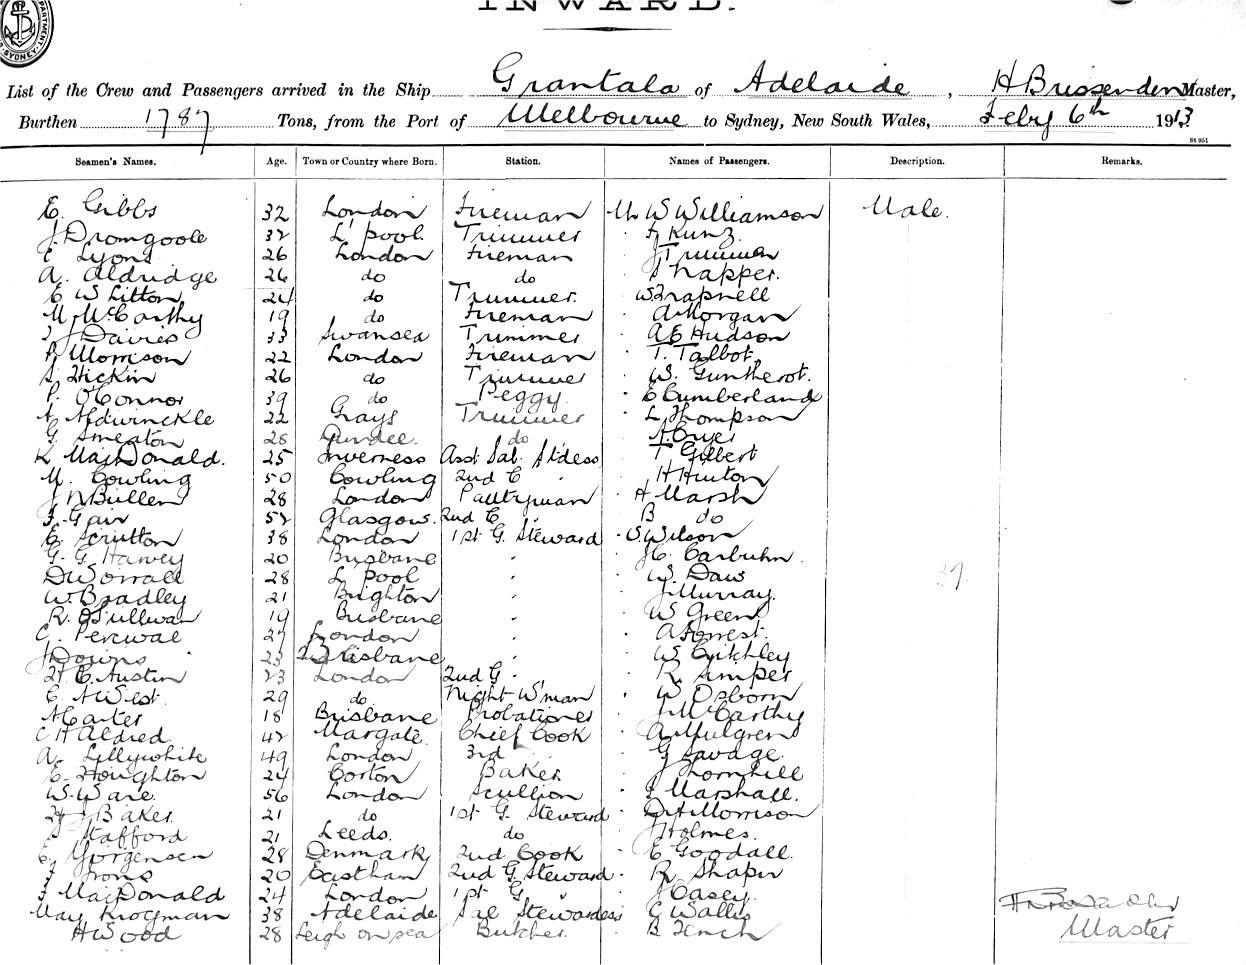 INWARD.
SYDNEY
List of the Crew and Passengers arrived in the Ship Grantala of Adelaide, H Brissenden Master,
Burthen 1787 Tons, from the Port of Melbourne to Sydney, New South Wales, Feby 6th 1913
St 951
Seamen's Names. Age. Town or Country where Born. Station. Names of Passengers. Description. Remarks.
E. Gibbs 32 London Fireman Mr W Williamson Male.
J. Dromgoole 32 L'pool. Trimmer J Kunz.
E Lyons 26 London Fireman J Trimmer
A. Aldridge 26 do do
E W Litton 24 do Trimmer. W. Trapnell
M McCarthy 19 do Fireman A Morgan
J Davies 33 Swansea Trimmer A E Hudson
R Morrison 22 London Fireman T. Talbot.
S. Hickin 26 do Trimmer W. Guntherot.
P. O'Connor 39 do Peggy E Cumberland
A. Aldwinckle 22 Grays Trimmer L Thompson
G. Smeaton 28 Dundee. do A. Cryer
K MacDonald. 25 Inverness Asst Sal. St'dess T Gilbert
M. Cowling 50 Cowling 2nd C " H Hinton
J N Bullen 28 London Pantryman H Marsh
J. Gair 52 Glasgow. 2nd C " B do
C. Scrutton 38 London 1st G. Steward S. Wilson
G. G. Harvey 20 Brisbane " J C. Carbuhn.
D Worrall 28 L'pool " W. Daw
W Bradley 21 Brighton " J Murray.
R. O'Sullivan 19 Brisbane " W Green
C. Percival 27 London " A Forrest.
J Downs 23 Brisbane " W Critchley
H C Austin 23 London 2nd G " R Simper
C A West. 29 do Night W'man W Osborn
A Carter 18 Brisbane Probationer J McCarthy
C H Aldred. 42 Margate. Chief Cook A Mulgren
A. Lillywhite 49 London 3rd " G Savage.
E. Houghton 24 Corton Baker. J Thornhill
W. Ware. 56 London Scullion J Marshall.
H J Baker. 21 do 1st G. Steward D H Morrison
S Stafford 21 Leeds. do J Holmes.
C. Yorgensen 28 Denmark 2nd Cook E Goodall.
J Irons 20 Eastham 2nd G Steward R Shapir
J MacDonald 24 London 1st G " J Casey
May Krogman 38 Adelaide Sal Stewardess C Wallis
H Wood 28 Leigh on sea Butcher. B Tench
Master
39.